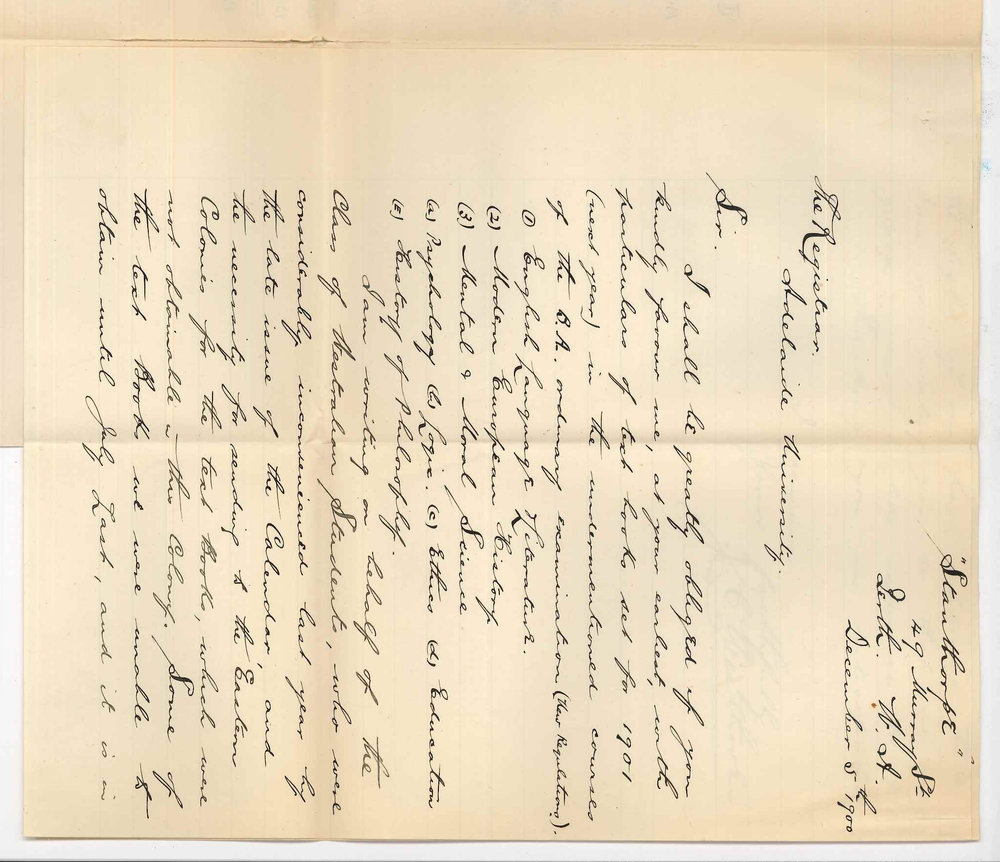 "Stainthorpe"
49 Murray St.
Perth. W. A.
December 5th 1900
The Registrar
Adelaide University.
Sir.
I shall be greatly obliged if you
kindly favour me, at your earliest, with
particulars of text books set for 1901
(next year) in the undermentioned courses
of the B.A. ordinary examination (New Regulations).
(1) English Language & Literature.
(2) Modern European History
(3) Mental & Moral Science
(a) Psychology (b) Logic. (c) Ethics (d) Education
(e) History of Philosophy.
I am writing on behalf of the
Class of Australian Students, who were
considerably inconvenienced last year by
the late issue of the Calendar, and
the necessity for sending to the Eastern
Colonies for the text Books, which were
not obtainable in this Colony. Some of
the text Books we were unable to
obtain until July last, and it is in